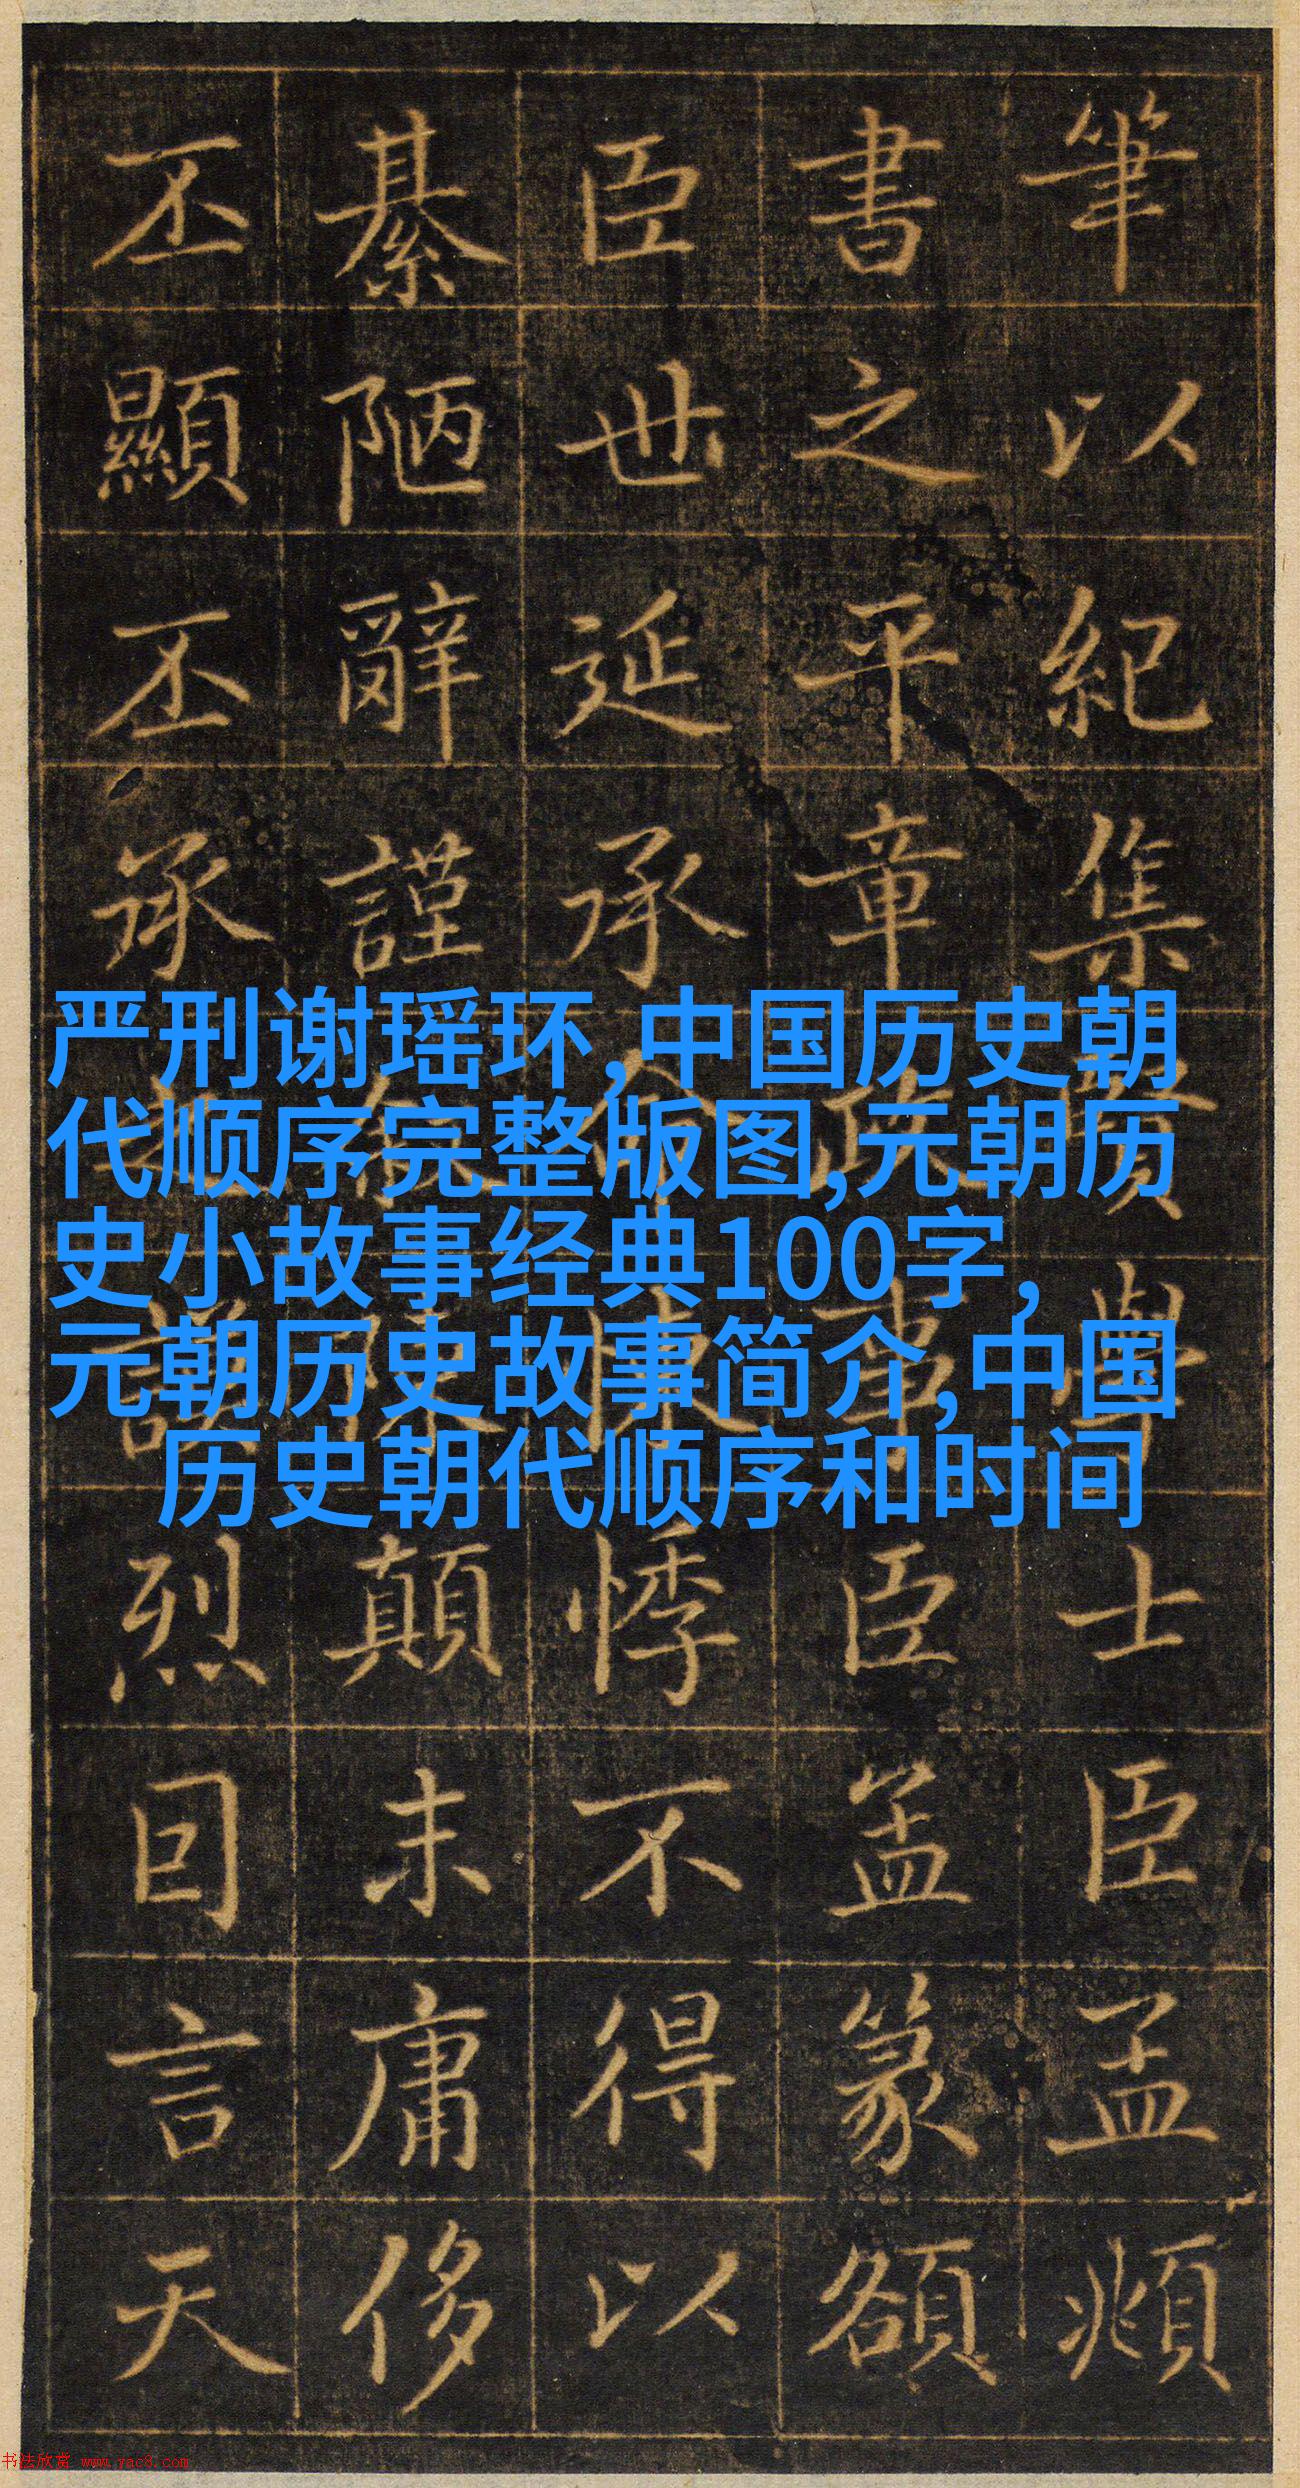 筆以紀集賢學士臣孟頫
書之平章政事臣篆額
臣世延承命悚悸不得以
綦陋辭謹顛末庸侈
丕顯丕承謨烈言天
严刑谢瑶环,中国历史朝
代顺序完整版图,元朝历
史小故事经典100字，
元朝历史故事简介,中国
历史朝代顺序和时间
书法欣赏 www.yac8.com